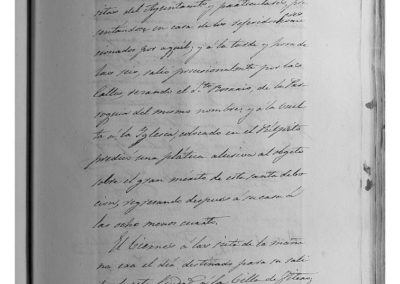 sitas del Ayuntamiento y particulares, pre
sentandose en casa de los
cionados por aquel; y á la tarde y hora de
las seis, salio procesionalmente por las
Calles, rezando el S.to Rosario, de la Par
roquia del mismo nombre; y á la vuel
ta á la Iglesia, colocado en el Púlpito
predicó una plática alusiva al objeto
sobre el gran merito de esta santa debo
cion, regresando despues á su casa á
las ocho menos cuarto.
El Viernes á las siete de la maña
na, era el dia destinado para su sali
la Villa de